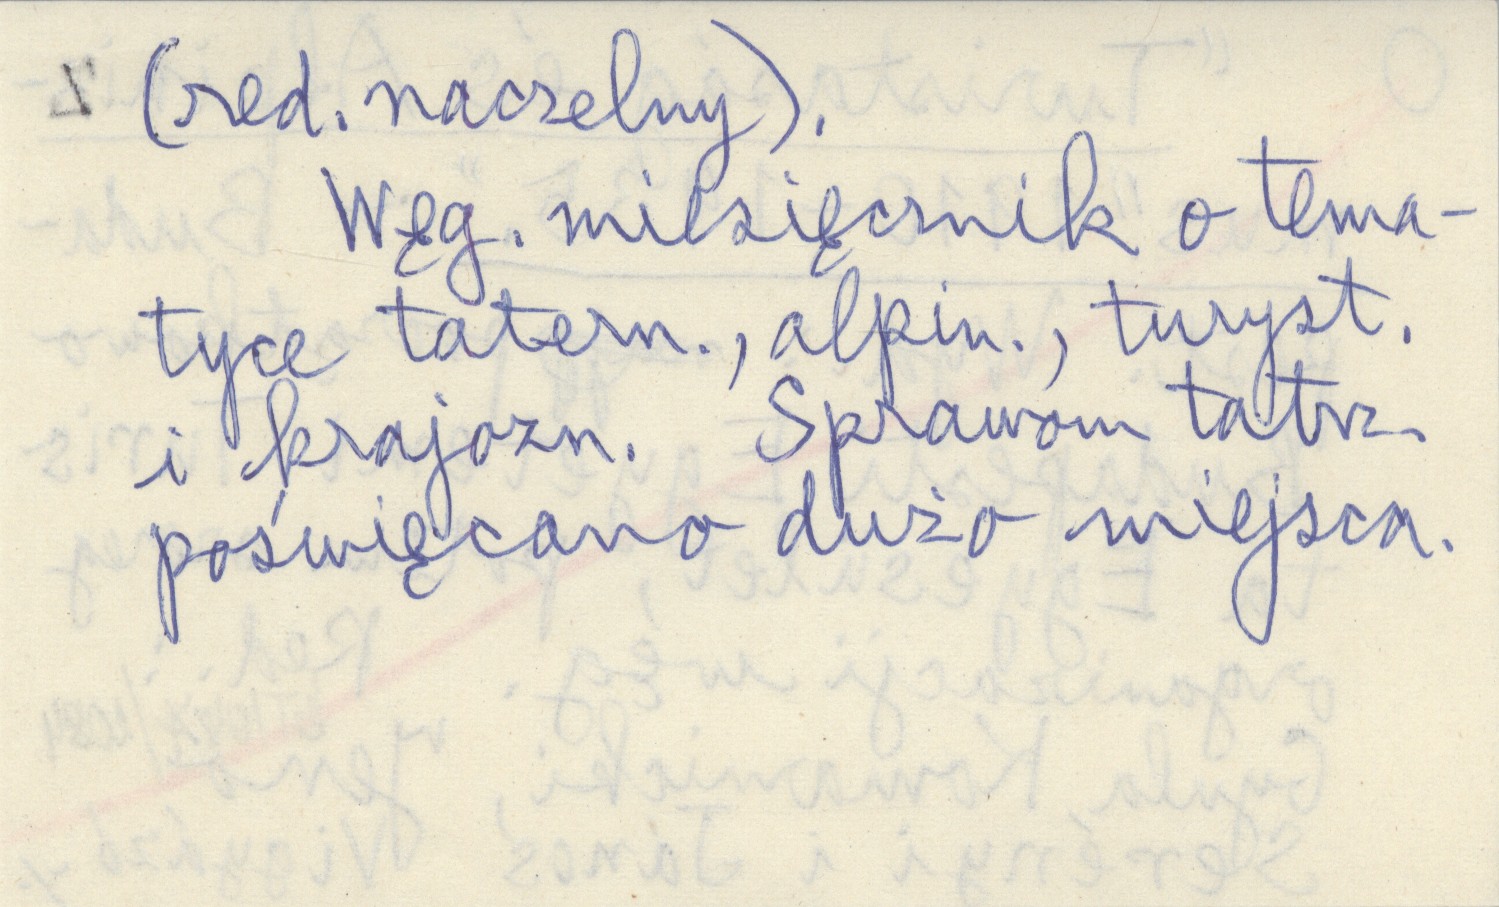 (red. naczelny).
Węg. miesięcznik o tema-
tyce tatern., alpin., turyst.
i krajozn. Sprawom tatrz.
poświęcano dużo miejsca.